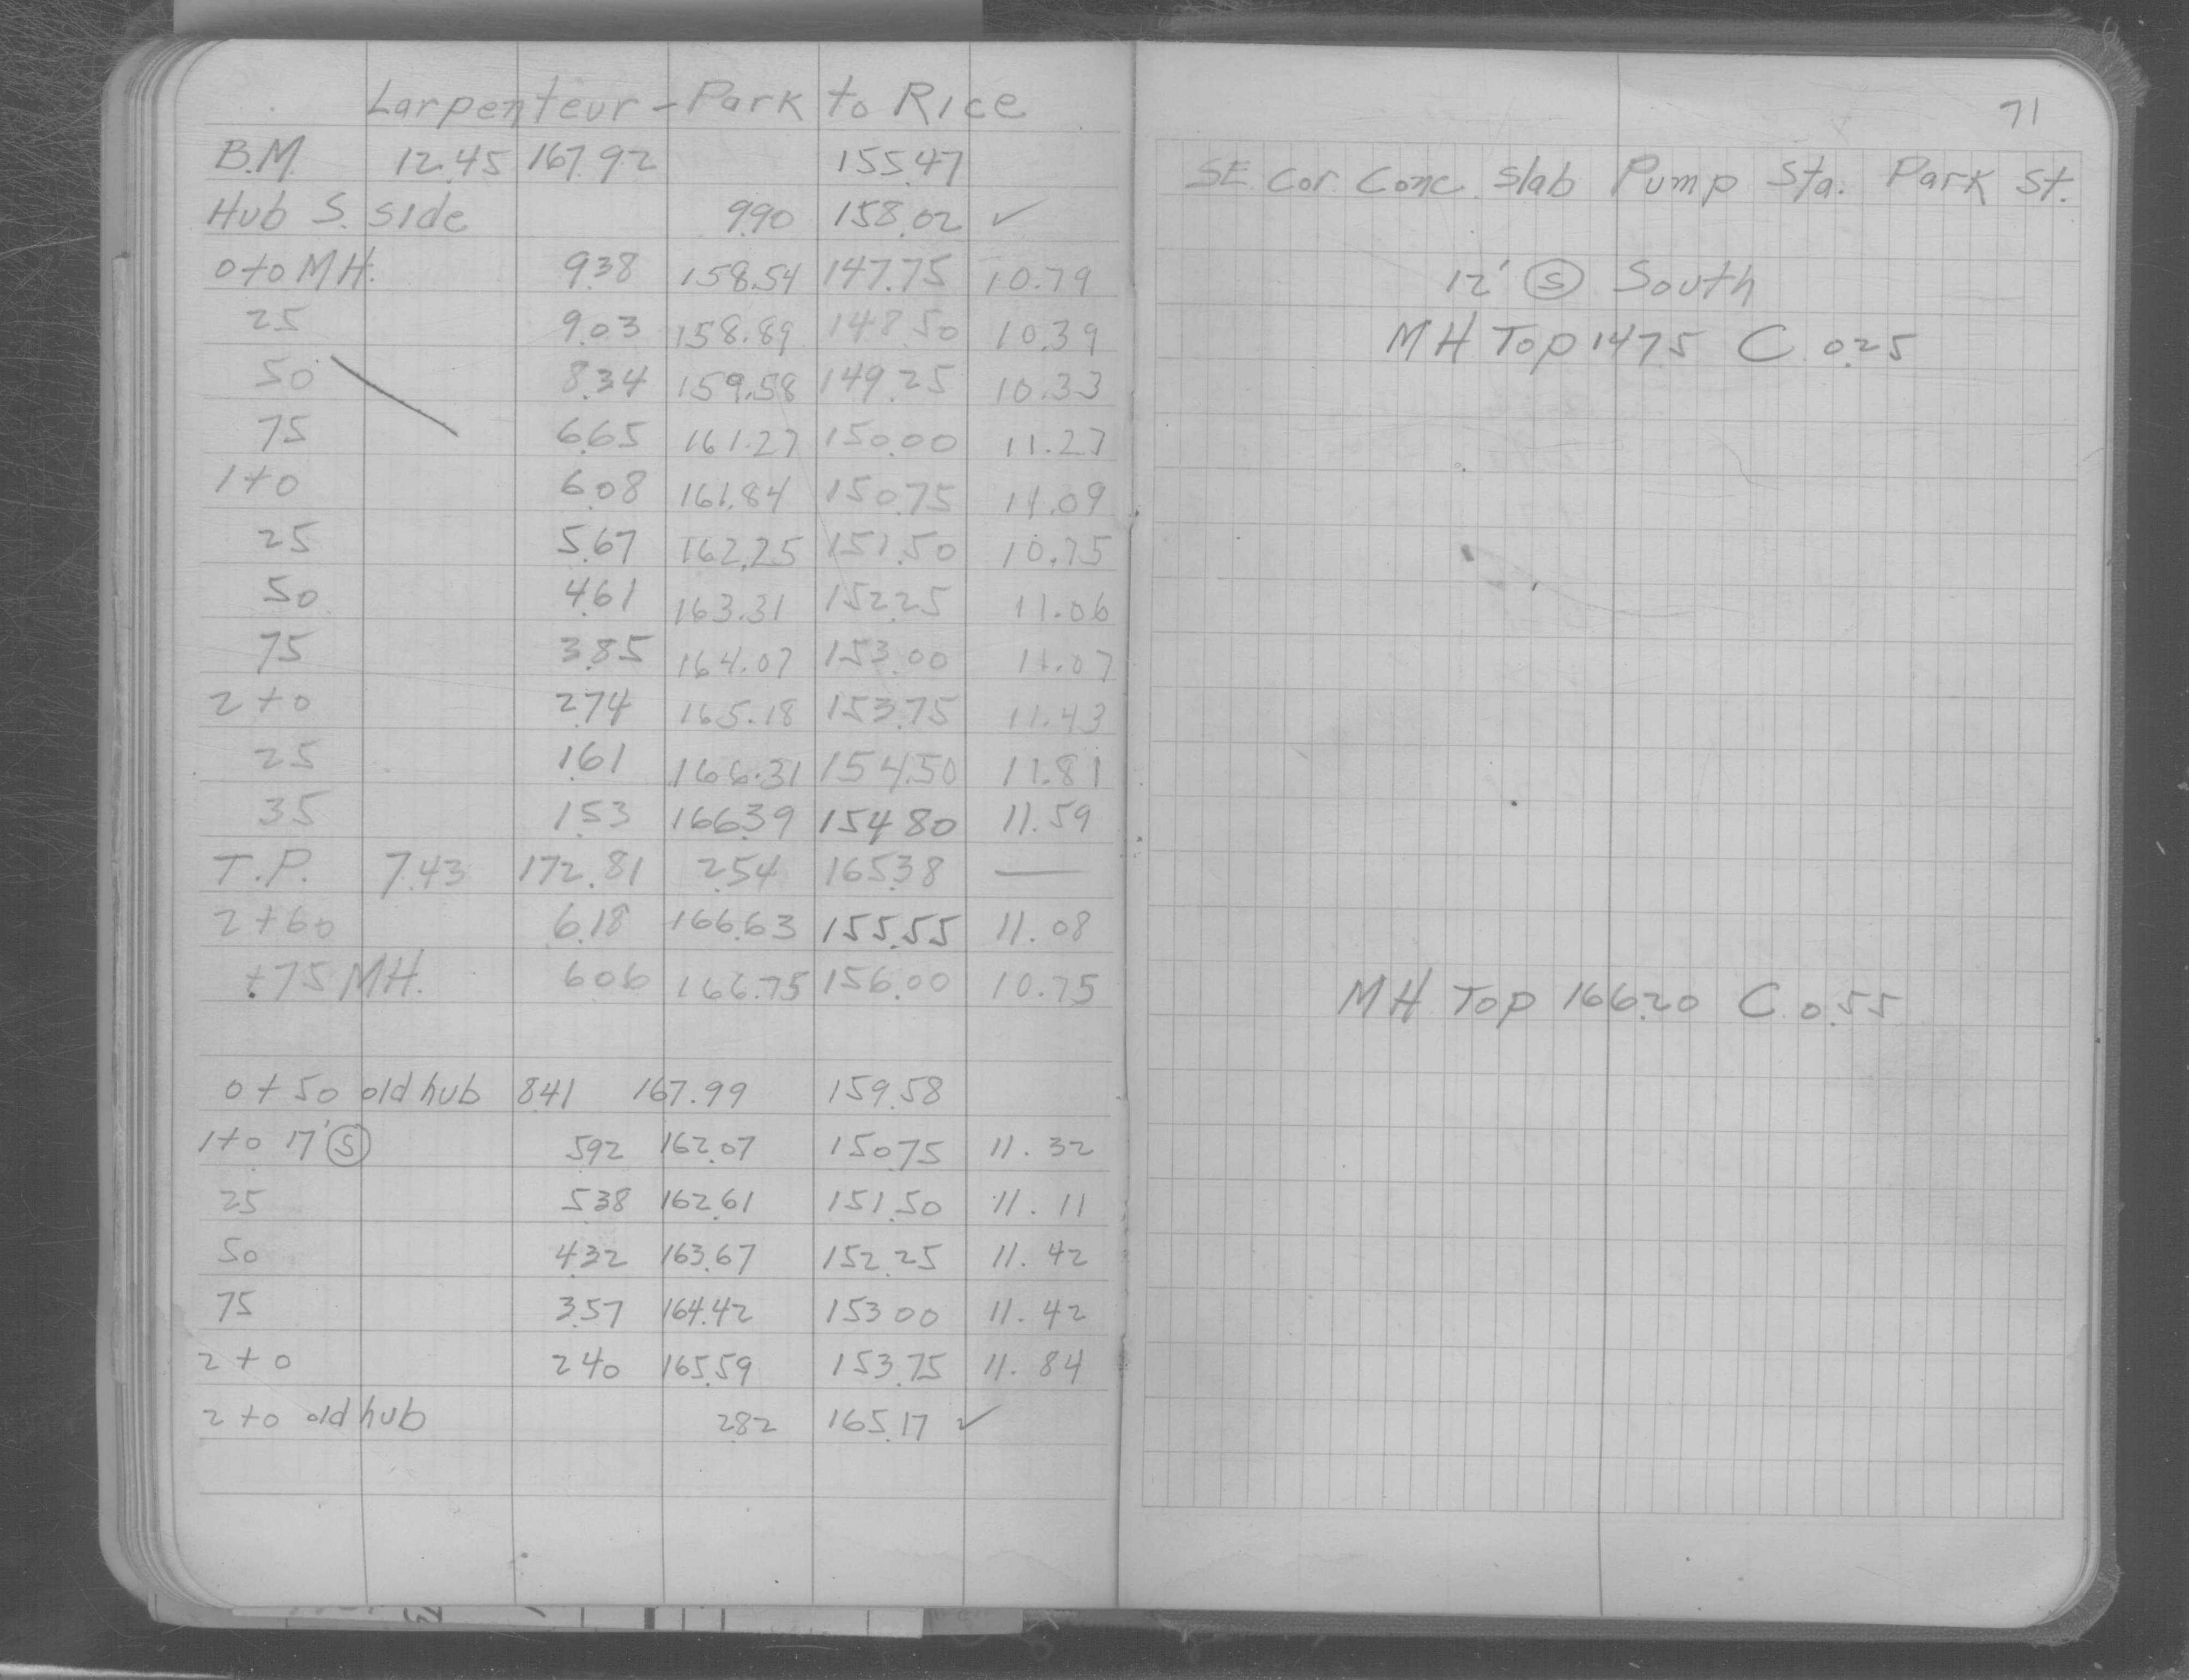 Larpenteur - Park to Rice
B.M. 12.45 167.92 155.47
Hub S. side 9.90 158.02 ✓
0+0 MH. 9.38 158.54 147.75 10.79
25 9.03 158.89 148.50 10.39
50 8.34 159.58 149.25 10.33
75 6.65 161.27 150.00 11.27
1+0 6.08 161.84 150.75 11.09
25 5.67 162.25 151.50 10.75
50 4.61 163.31 152.25 11.06
75 3.85 164.07 153.00 11.07
2+0 2.74 165.18 153.75 11.43
25 1.61 166.31 154.50 11.81
35 1.53 166.39 154.80 11.59
T.P. 7.43 172.81 2.54 165.38 —
2+60 6.18 166.63 155.55 11.08
+75 MH. 6.06 166.75 156.00 10.75
0+50 old hub 8.41 167.99 159.58
1+0 17' Ⓢ 5.92 162.07 150.75 11.32
25 5.38 162.61 151.50 11.11
50 4.32 163.67 152.25 11.42
75 3.57 164.42 153.00 11.42
2+0 2.40 165.59 153.75 11.84
2+0 old hub 2.82 165.17 ✓
71
SE. Cor. Conc. Slab Pump Sta. Park St.
12' Ⓢ South
MH Top 147.5 C 0.25
MH Top 166.20 C 0.55